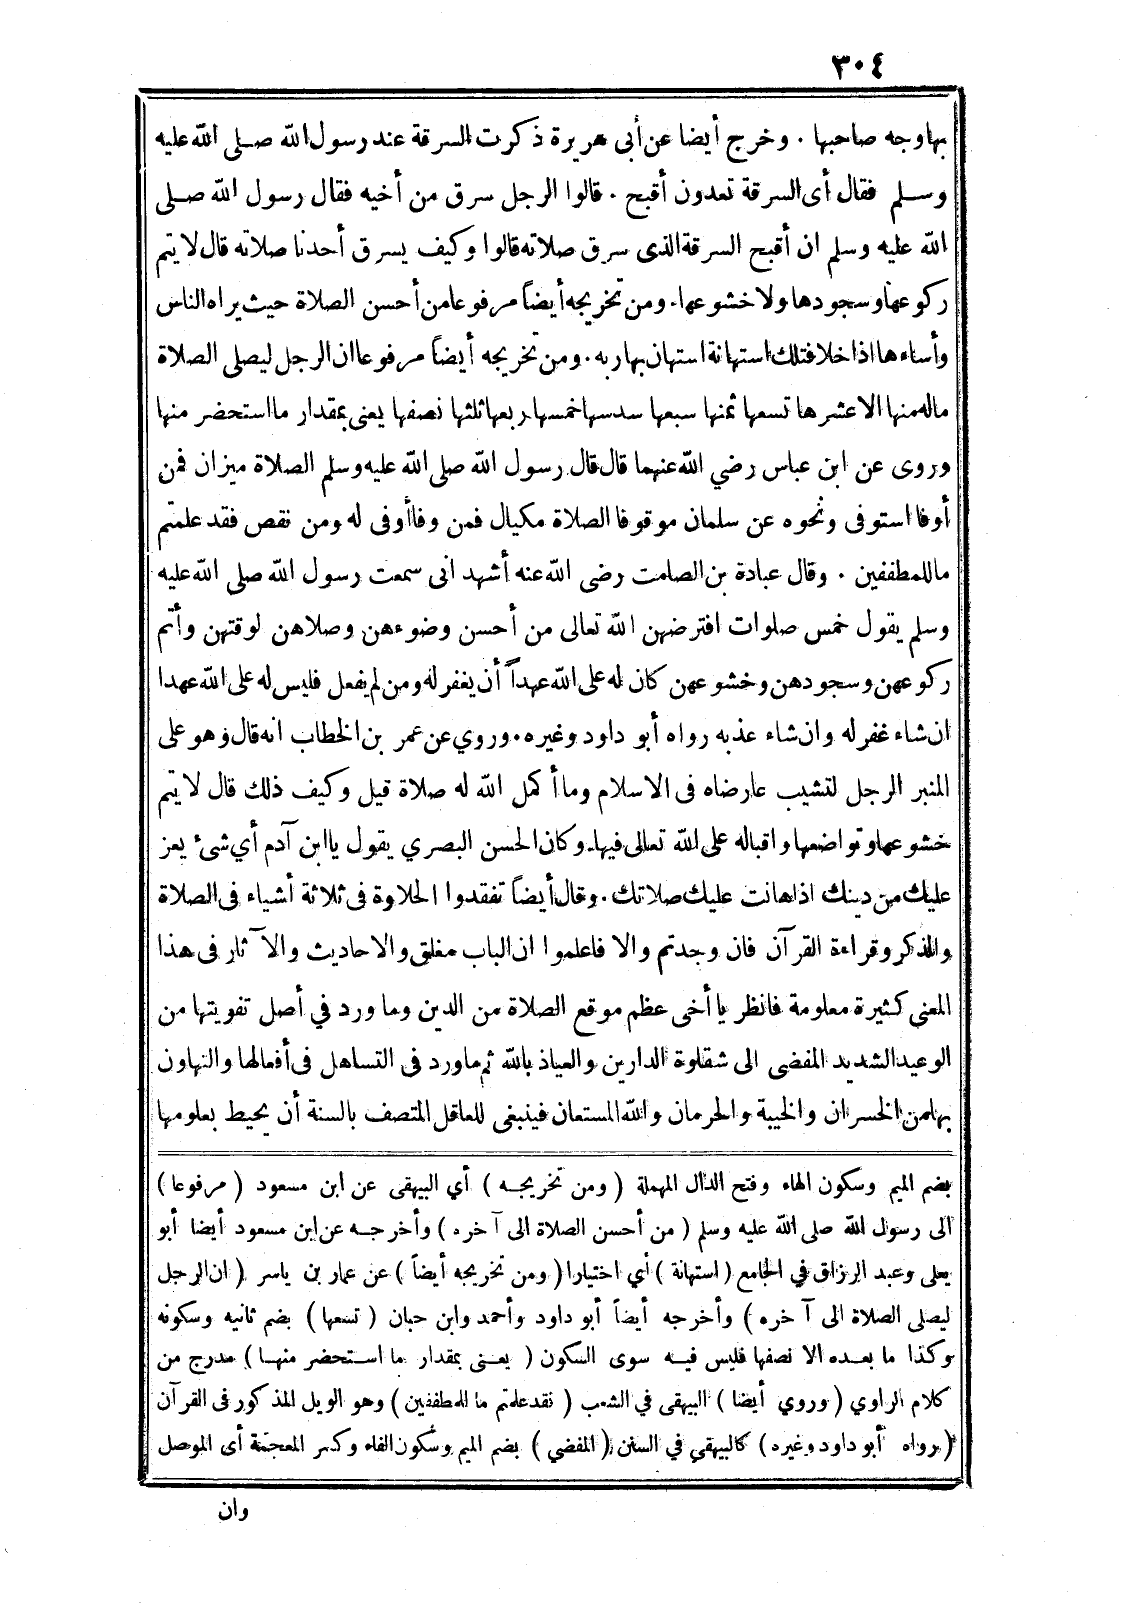 ٣٠٤
بها وجه صاحبها . وخرج أيضا عن أبى هريرة ذكرت السرقة عند رسول الله صلى الله عليه
وسلم فقال أى السرقة تعدون أقبح . قالوا الرجل سرق من أخيه فقال رسول الله صلى
الله عليه وسلم ان أقبح السرقة الذى سرق صلاته قالوا وكيف يسرق أحدنا صلاته قال لا يتم
ركوعها وسجودها ولا خشوعها . ومن تخريجه أيضاً مرفوعا من أحسن الصلاة حيث يراه الناس
وأساءها اذا خلا فتلك استهانة استهان بها ربه . ومن تخريجه أيضاً مرفوعا ان الرجل ليصلى الصلاة
ماله منها الا عشرها تسعها ثمنها سبعها سدسها خمسها ربعها ثلثها نصفها يعنى بمقدار ما استحضر منها
وروى عن ابن عباس رضي الله عنهما قال قال رسول الله صلى الله عليه وسلم الصلاة ميزان فمن
أوفا استوفى ونحوه عن سلمان موقوفا الصلاة مكيال فمن وفا أوفى له ومن نقص فقد علمتم
ما للمطففين . وقال عبادة بن الصامت رضى الله عنه أشهد انى سمعت رسول الله صلى الله عليه
وسلم يقول خمس صلوات افترضهن الله تعالى من أحسن وضوءهن وصلاهن لوقتهن وأتم
ركوعهن وسجودهن وخشوعهن كان له على الله عهداً أن يغفر له ومن لم يفعل فليس له على الله عهدا
ان شاء غفر له وان شاء عذبه رواه أبو داود وغيره . وروي عن عمر بن الخطاب انه قال وهو على
المنبر الرجل لتشيب عارضاه فى الاسلام وما أكمل الله له صلاة قيل وكيف ذلك قال لا يتم
خشوعها وتواضعها واقباله على الله تعالى فيها . وكان الحسن البصري يقول يا ابن آدم أي شئ يعز
عليك من دينك اذا هانت عليك صلاتك . وقال أيضاً تفقدوا الحلاوة فى ثلاثة أشياء فى الصلاة
والذكر وقراءة القرآن فان وجدتم والا فاعلموا ان الباب مغلق والاحاديث والآثار فى هذا
المعنى كثيرة معلومة فانظر يا أخى عظم موقع الصلاة من الدين وما ورد في أصل تفويتها من
الوعيد الشديد المفضى الى شقاوة الدارين والعياذ بالله ثم ما ورد فى التساهل فى أفعالها والتهاون
بها من الخسران والخيبة والحرمان والله المستعان فينبغى للعاقل المتصف بالسنة أن يحيط بعلومها
بضم الميم وسكون الهاء وفتح الدال المهملة ( ومن تخريجه ) أي البيهقى عن ابن مسعود ( مرفوعا )
الى رسول الله صلى الله عليه وسلم ( من أحسن الصلاة الى آخره ) وأخرجه عن ابن مسعود أيضا أبو
يعلى وعبد الرزاق في الجامع ( استهانة ) أي اختيارا ( ومن تخريجه أيضاً ) عن عمار بن ياسر ( ان الرجل
ليصلى الصلاة الى آخره ) وأخرجه أيضاً أبو داود وأحمد وابن حبان ( تسعها ) بضم ثانيه وسكونه
وكذا ما بعده الا نصفها فليس فيه سوى السكون ( يعنى بمقدار ما استحضر منها ) مدرج من
كلام الراوي ( وروي أيضا ) البيهقى في الشعب ( نقد علمتم ما للمطففين ) وهو الويل المذكور فى القرآن
( رواه أبو داود وغيره ) كالبيهقي في السنن ( المفضي ) بضم الميم وسكون الفاء وكسر المعجمة أى الموصل
وان